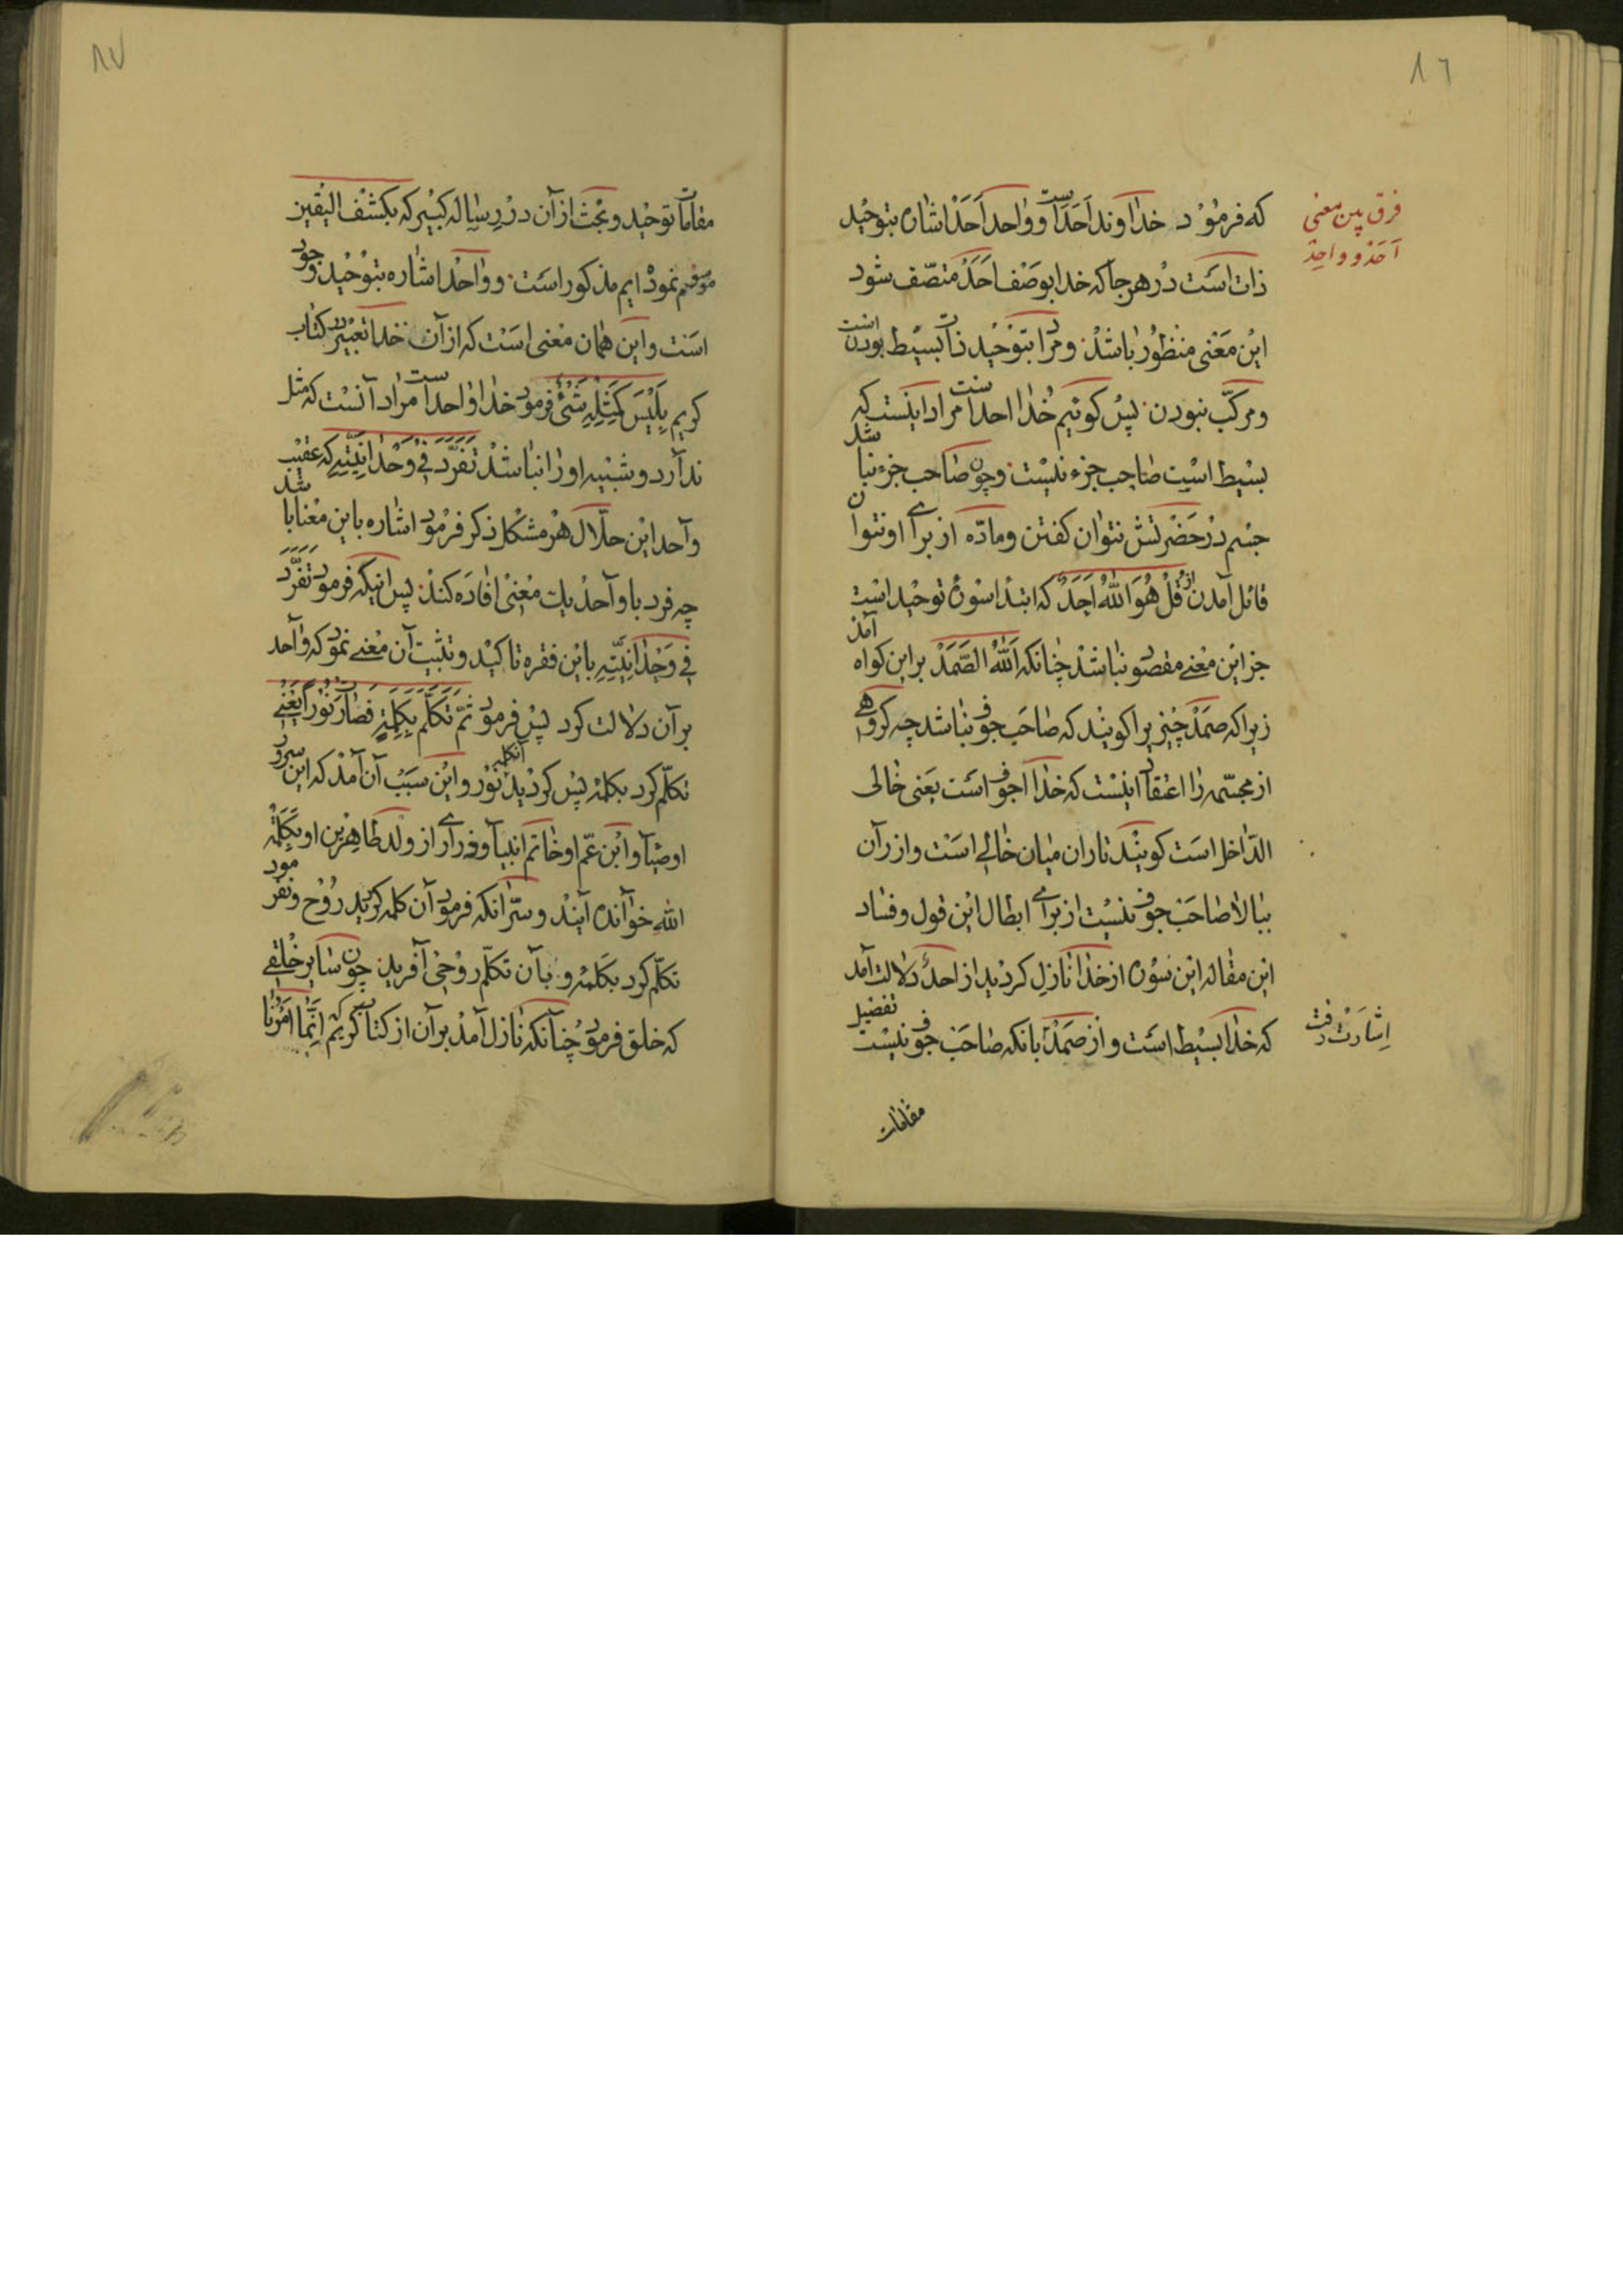 ٨٦
فرق بین معنی
آحَدْ و واحِدْ
که فرمُوْد خداوند اَحَدَاست و واحد اَحَدْ اشاره بتوحید
ذات است دْرهرجا که خدا بوصْف اَحَدْ متصّف شود
این مَعْنی منظوُر باشدْ و مراد بتوْحید ذات بسیْط بودن است
و مرکّب نبودن پسْ کوئیم خُدا احد است مراد اینست که
بسیْط اسْت صٰاحب جزء نیسْت و چون صٰاحب جزء نباشد
جسْم دْرحَضْرتشْ نتوٰان کفتن و مادّه از براے او نتوان
قائل آمدن از قُلْ هُوَ اللّٰهُ اَحَدٌ که ابتدٰا سوْرهٔ توحیْد اسْت
جز این معْنے مقصود نباشدْ چنٰانکه اَللّٰهُ الصَّمَدْ بر این کواه آمد
زیرا که صمَدْ چیْزیرا کویند که صٰاحَب جوف نبٰاشد چه کروهے
از مجسّمه رٰا اعتقاد اینسْت که خدٰا اجوف است یَعنی خٰالی
الدّاخل اسَت کوینْد تاران میٰان خٰالے اسَت و از رآن
ببٰالا صٰاحَبْ جوف نیسْت از براے ابطال ایْن قول و فسٰاد
این مقٰاله این سوْره از خدٰا نٰازل کردیْد از احدْ دلالت آمد
که خدٰا بسیْط اسَت و از صَمَدْ بانکه صٰاحَبْ جوف نیسْت تفضیل
اِشارَتْ رفت
مقامات
٨٧
مقامات توحیْد و بحْث از آن در رسٰاله کبیْر که بکشْف الیَقین
موسوم نمودْه ایم مذکور اسَت و وٰاحْد اشٰاره بتوْحیْد وجود
اسَت و این همٰان معْنی اسَت که از آن خدا تعبیْر در کتٰاب
کریم بِلَیْسَ کَمِثْلِهِ شَیْئٌ فرمود خدٰا وٰاحد است مرٰاد آنسْت که مثل
ندٰارد و شبیْه او رٰا نبٰاشدْ تَفَرَّدَ فِیْ وَحْدٰانِیَّتِهِ که عقیْب
وٰاحد ایْن حلّال هرْ مشکل ذکر فرْمود اشٰاره باین معْنا باشد
چه فرد با وٰاحدْ یك معْنیٰ افٰادَه کنندْ پس اینکه فرمود تَفَرَّدَ
فِیْ وَحْدٰانِیَّتِهِ باین فقره تاکیْد و تثبیْت آن معْنے نمود که وٰاحد
بر آن دلالت کرد پسْ فرمود ثُمَّ تَکَلَّمَ بِکَلِمَةٍ فَصٰارَتْ نُوْراً یَعْنے
تکلّم کرد بکلمه پسْ کردیْد آنکلمه نوْر و ایْن سَبَبْ آن آمدْ که این سرور
اوصیٰآ و ابْن عمّ او خٰاتم انبیٰآ و فرٰارے از ولد طٰاهریْن او بکَلِمَةُ
اللّٰهِ خوٰانده آیندْ و سرّ انکه فرمود آن کلمه کردید روُح و نفرمود
تکلّم کرد بکَلمه و بآن تکلّم روُحیْ آفرید چون سٰایر خلْقے
که خلق فرمود چُنٰانکه نٰازل آمدْ بر آن از کتاب کریم اِنَّمٰا اَمْرُنٰا